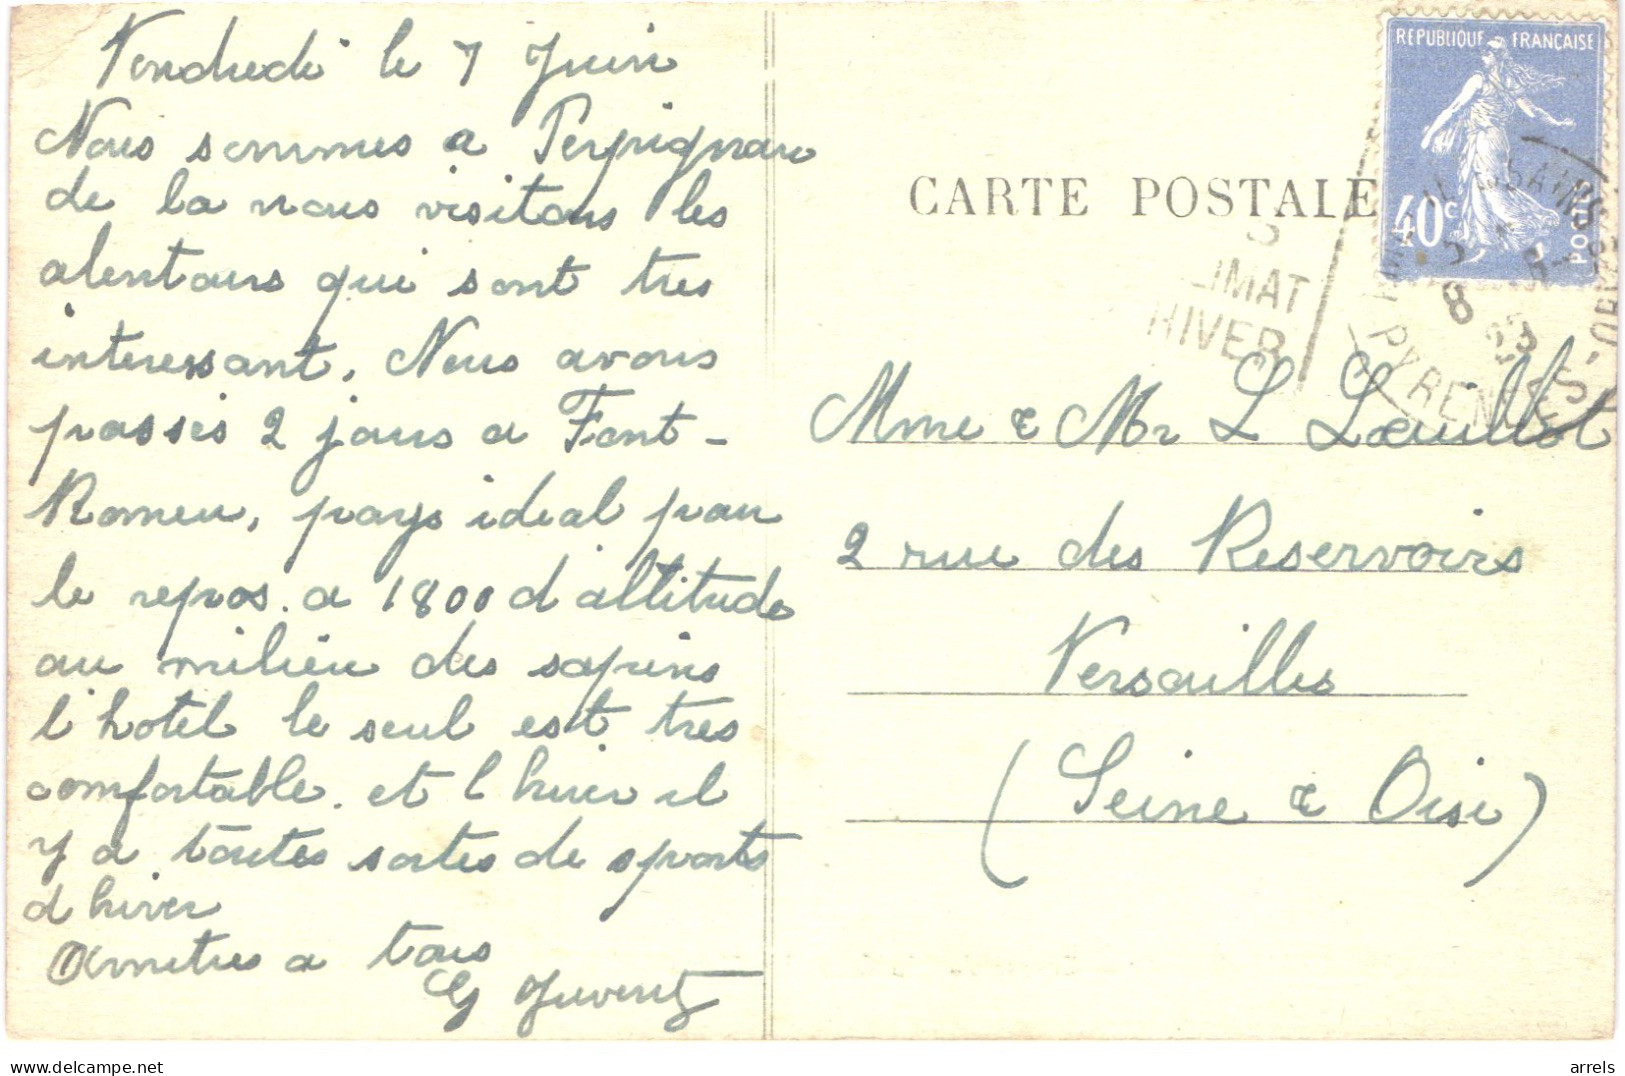 Vendredi le 7 Juin
Nous sommes a Perpignan
de la nous visitons les
alentours qui sont tres
interessant. Nous avons
passés 2 jours a Font-
Romeu, pays ideal pour
le repos. a 1800 d altitude
au milieu des sapins
l'hotel le seul est tres
comfortable. et l hiver il
y a toutes sortes de sports
d hiver
Amities a tous
G
CARTE POSTALE
REPUBLIQUE FRANÇAISE
40c
POSTES
LIMAT
HIVER
8
PYRENEES-ORles
Mme & Mr L
2 rue des Reservoirs
Versailles
(Seine & Oise)
arrels
delcampe.net